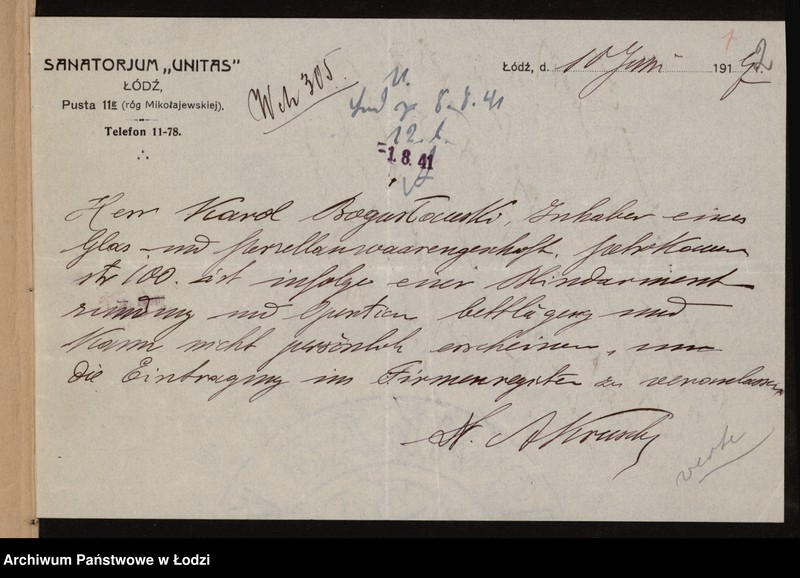 SANATORJUM „UNITAS"
ŁÓDŹ,
Pusta 11E (róg Mikołajewskiej).
Telefon 11-78.
Wch 305.
8.8.41
12.
-1.8.41
Łódź, d. 10 Juni 191
Herr Karol Bogusławski, Inhaber eines
Glas- und Porzellanwaarengeschäft. Petrokauer
str 100. ist infolge einer Blindarment
zündung und Operation bettlägerig und
kann nicht persönlich erscheinen, um
die Eintragung ins Firmenregister zu veranlassen
verte
Archiwum Państwowe w Łodzi